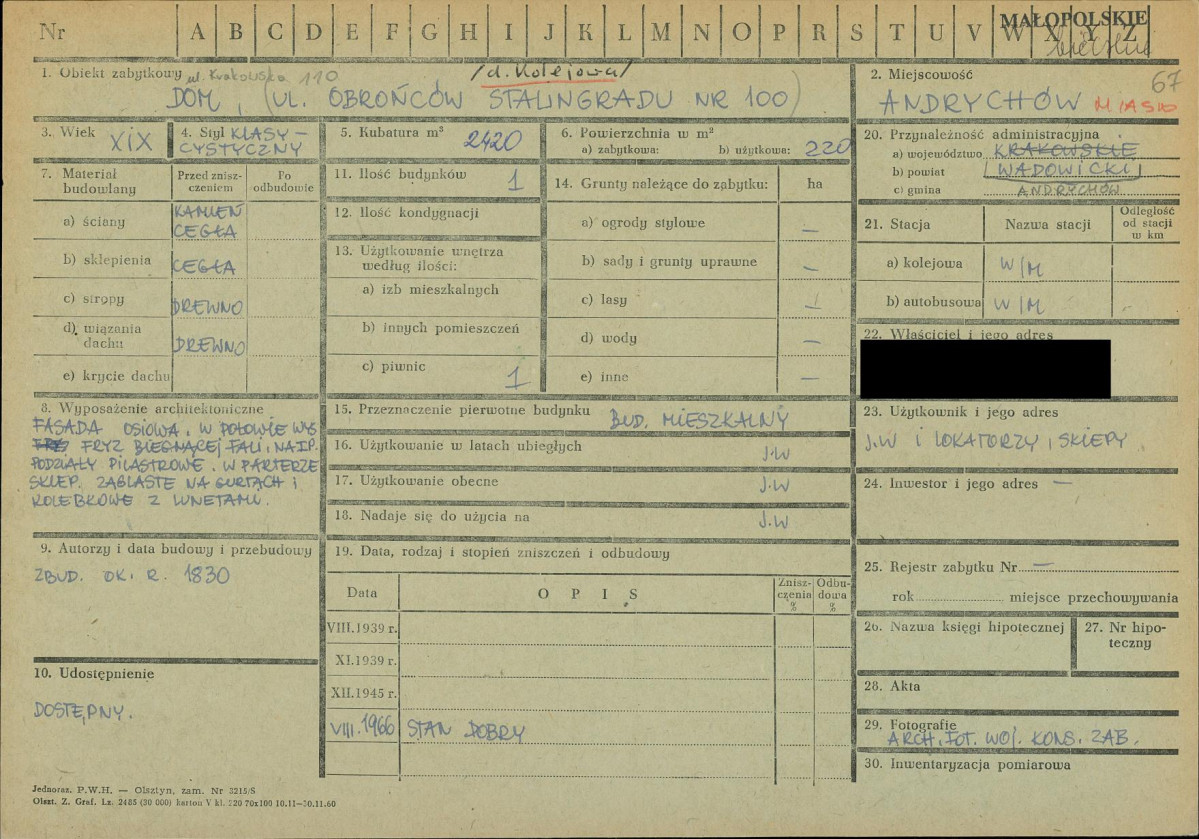 Nr A B C D E F G H I J K L M N O P R S T U V W X Y Z
MAŁOPOLSKIE
bielskie
1. Obiekt zabytkowy ul. Krakowska 110
/d. Kolejowa/
DOM, (UL. OBROŃCÓW STALINGRADU NR 100)
2. Miejscowość 67
ANDRYCHÓW MIASTO
3. Wiek XIX
4. Styl KLASY-
CYSTYCZNY
5. Kubatura m³ 2420
6. Powierzchnia w m²
a) zabytkowa: b) użytkowa: 220
7. Materiał budowlany
Przed znisz-
czeniem
Po
odbudowie
a) ściany KAMIEŃ
CEGŁA
b) sklepienia CEGŁA
c) stropy DREWNO
d) wiązania
dachu DREWNO
e) krycie dachu
8. Wyposażenie architektoniczne
FASADA OSIOWA. W POŁOWIE WYS
FRYZ BIEGNĄCEJ FALI, NA IP.
PODZIAŁY PILASTROWE. W PARTERZE
SKLEP. ŻAGLASTE NA GURTACH I
KOLEBKOWE Z LUNETAMI.
9. Autorzy i data budowy i przebudowy
ZBUD. OK. R. 1830
10. Udostępnienie
DOSTĘPNY.
11. Ilość budynków 1
12. Ilość kondygnacji
13. Użytkowanie wnętrza
według ilości:
a) izb mieszkalnych
b) innych pomieszczeń
c) piwnic 1
14. Grunty należące do ząbytku: ha
a) ogrody stylowe —
b) sady i grunty uprawne —
c) lasy —
d) wody —
e) inne —
15. Przeznaczenie pierwotne budynku BUD. MIESZKALNY
16. Użytkowanie w latach ubiegłych J.W
17. Użytkowanie obecne J.W
18. Nadaje się do użycia na J.W
19. Data, rodzaj i stopień zniszczeń i odbudowy
Data OPIS
Znisz-
czenia
%
Odbu-
dowa
%
VIII.1939 r.
XI.1939 r.
XII.1945 r.
VIII.1966 STAN DOBRY
20. Przynależność administracyjna
a) województwo KRAKOWSKIE
b) powiat WADOWICKI
c) gmina ANDRYCHÓW
21. Stacja Nazwa stacji
Odległość
od stacji
w km
a) kolejowa W/M
b) autobusowa W/M -
22. Właściciel i jego adres
23. Użytkownik i jego adres
J.W I LOKATORZY, SKLEPY
24. Inwestor i jego adres —
25. Rejestr zabytku Nr —
rok miejsce przechowywania
26. Nazwa księgi hipotecznej
27. Nr hipo-
teczny
28. Akta
29. Fotografie
ARCH. FOT. WOJ. KONS. ZAB.
30. Inwentaryzacja pomiarowa
Jednoraz. P.W.H. — Olsztyn, zam. Nr 3215/S
Olszt. Z. Graf. Lz. 2485 (30 000) karton V kl. 220 70x100 10.11—30.11.60